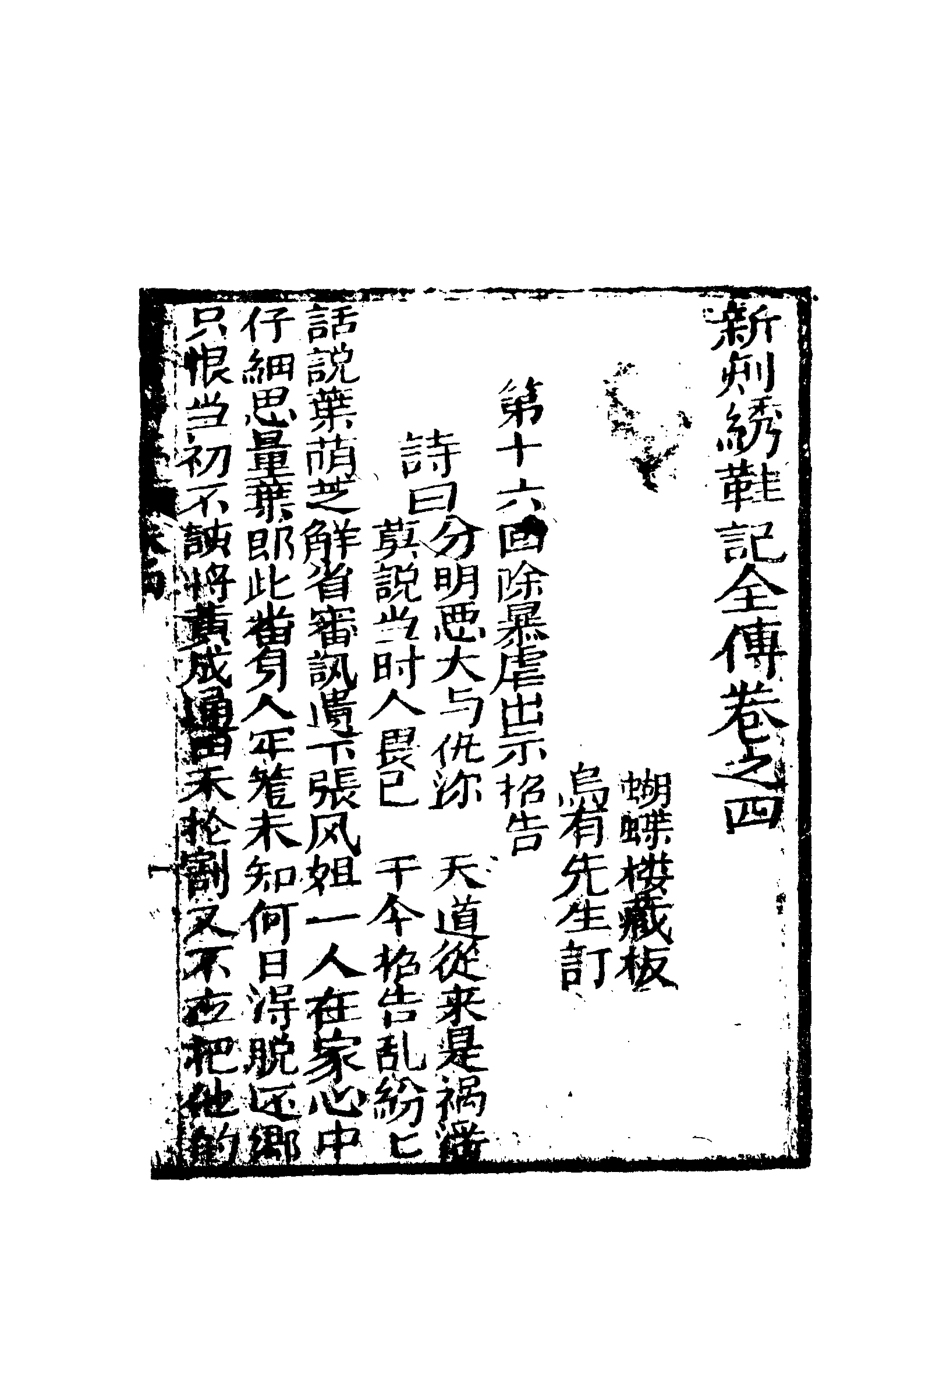 新刻綉鞋記全傳卷之四
蝴蝶楼藏板
烏有先生訂
第十六回除暴虐出示招告
詩曰分明悪大与仇深　天道從来是禍滛
莫説当时人畏已　于今招告乱紛匕
話説葉萌芝解省審訊遺下張风姐一人在家心中
仔細思量葉郎此畨身入牢篭未知何日淂脱还鄉
只恨当初不該将黄成通田禾抢割又不应把他的